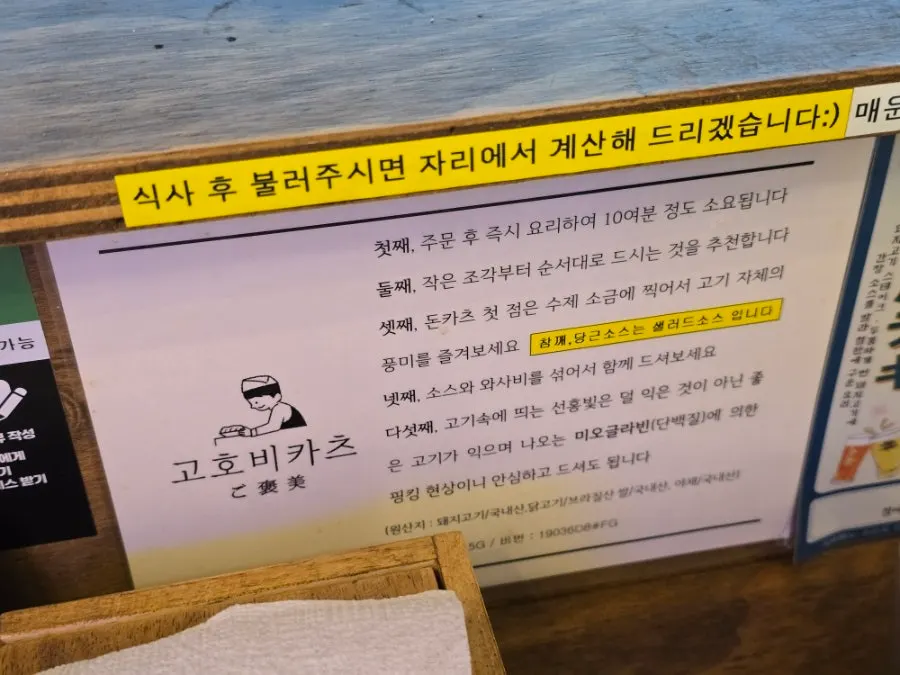 식사 후 불러주시면 자리에서 계산해 드리겠습니다:)
매운
첫째, 주문 후 즉시 요리하여 10여분 정도 소요됩니다
둘째, 작은 조각부터 순서대로 드시는 것을 추천합니다
셋째, 돈카츠 첫 점은 수제 소금에 찍어서 고기 자체의
풍미를 즐겨보세요 참깨,당근소스는 샐러드소스 입니다
넷째, 소스와 와사비를 섞어서 함께 드셔보세요
다섯째, 고기속에 띄는 선홍빛은 덜 익은 것이 아닌 좋
은 고기가 익으며 나오는 미오글라빈(단백질)에 의한
핑킹 현상이니 안심하고 드셔도 됩니다
(원산지 : 돼지고기/국내산,닭고기/브라질산 쌀/국내산, 야채/국내산)
5G / 비번 : 19036D8#FG
고호비카츠
ご褒美
가능
작성
에게
기
스 받기